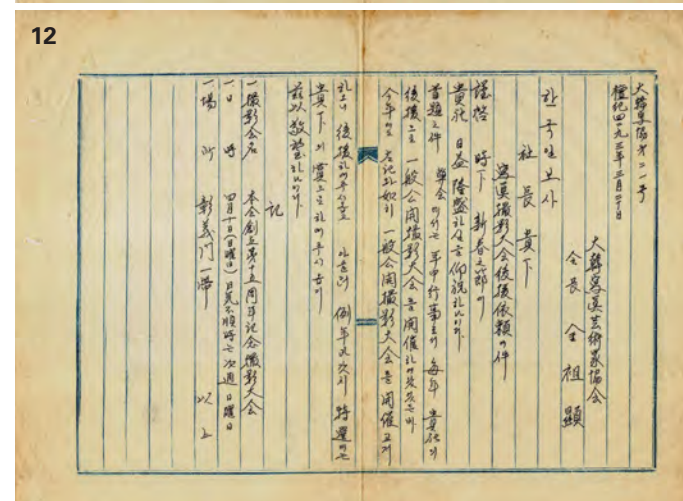 12
大韓写協第二一号
檀紀四二九三年三月二十日
大韓寫眞芸術家協会
会長 金祖顯
한국일보사
社長 貴下
寫眞撮影大会後援依賴의件
謹啓 時下 新春之節에
貴社 日益 隆盛하심을 仰祝하나이다
首題之件 弊会에서는 年中行事로서 每年 貴社의
後援으로 一般公開撮影大会를 開催하여 왔아온바
今年도 左記와 如히 一般公開撮影大会를 開催코저
하오니 後援하여주심과 아울러 例年과 같이 特選에는
貴下의 賞으로 하여주시옵기
茲以敬望하나이다
記
一 撮影会名 本会創立第十五周年記念撮影大会
一 日時 四月十日(日曜日) 日気不順時는 次週 日曜日
一 場所 彰義門一帶
以上